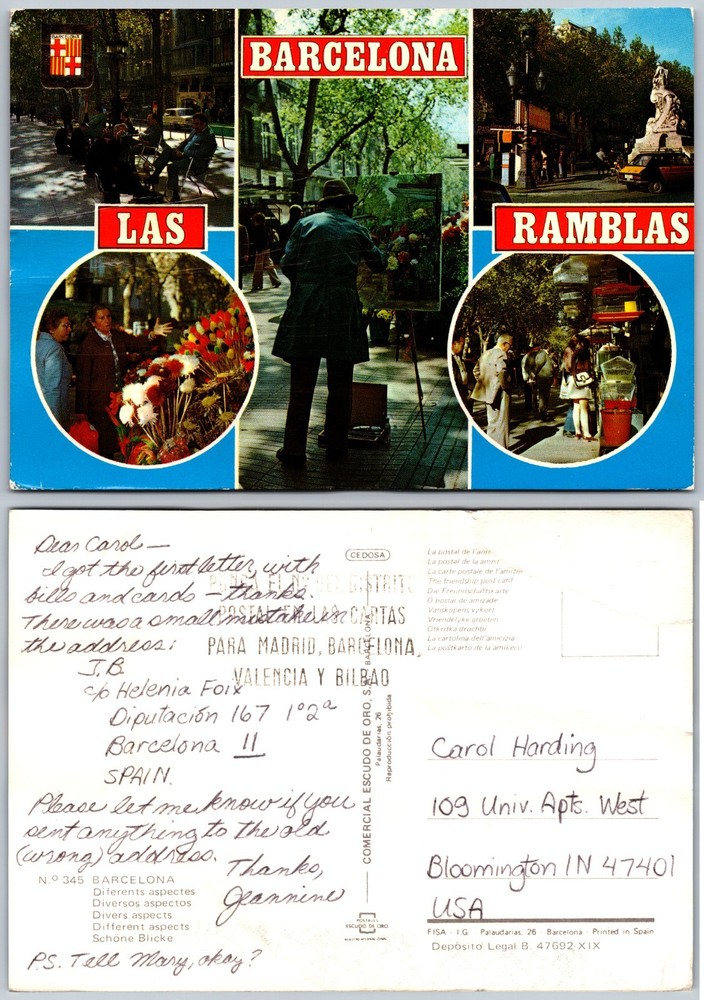 BARCELONA
BARCELONA
LAS
RAMBLAS
Dear Carol —
I got the first letter, with
bills and cards — thanks.
There was a small mistake in
the address:
J.B.
c/o Helenia Foix
Diputación 167 1º2ª
Barcelona 11
SPAIN.
Please let me know if you
sent anything to the old
(wrong) address.
Thanks,
Jeannine
N.º 345 BARCELONA
Diferents aspectes
Diversos aspectos
Divers aspects
Different aspects
Schöne Blicke
P.S. Tell Mary, okay?
PONGA EL Nº DEL DISTRITO
POSTAL EN LAS CARTAS
PARA MADRID, BARCELONA,
VALENCIA Y BILBAO
CEDOSA
COMERCIAL ESCUDO DE ORO, S.A. BARCELONA
Palaudarias, 26
Reproducción prohibida
POSTALES
ESCUDO DE ORO
La postal de l'amic
La postal de la amistad
La carte postale de l'amitié
The friendship post card
Die Freundschaftskarte
O postal de amizade
Vänskapens vykort
Vriendelijke groeten
La cartolina dell'amicizia
Carol Harding
109 Univ. Apts. West
Bloomington IN 47401
USA
FISA - I.G. Palaudarias, 26 Barcelona - Printed in Spain
Depósito Legal B. 47692-XIX